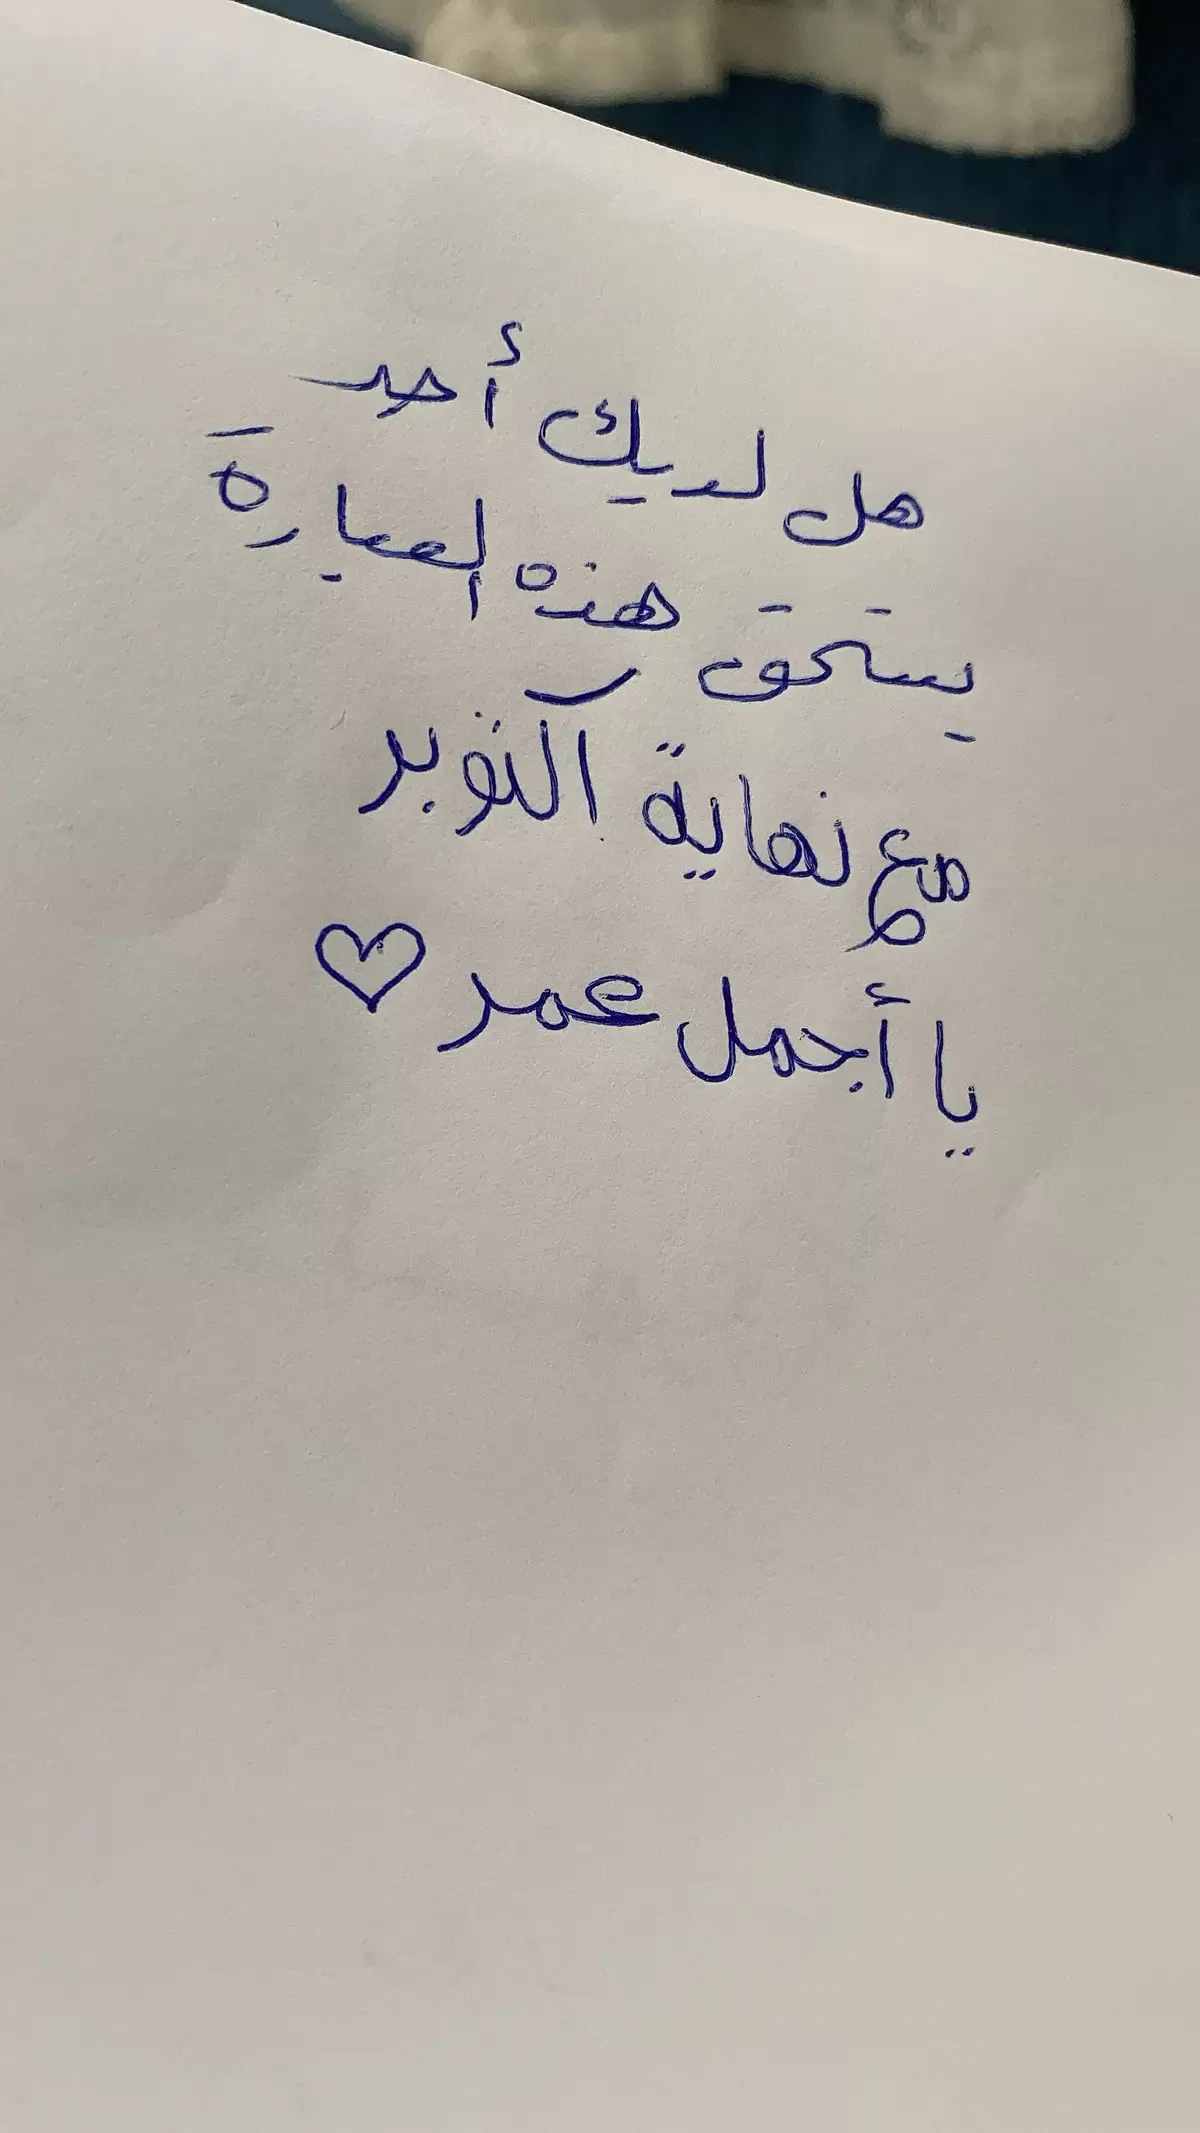 هل لديك أحد
يستحق هذه العبارة
مع نهاية آكتوبر
يا أجمل عمر ♡